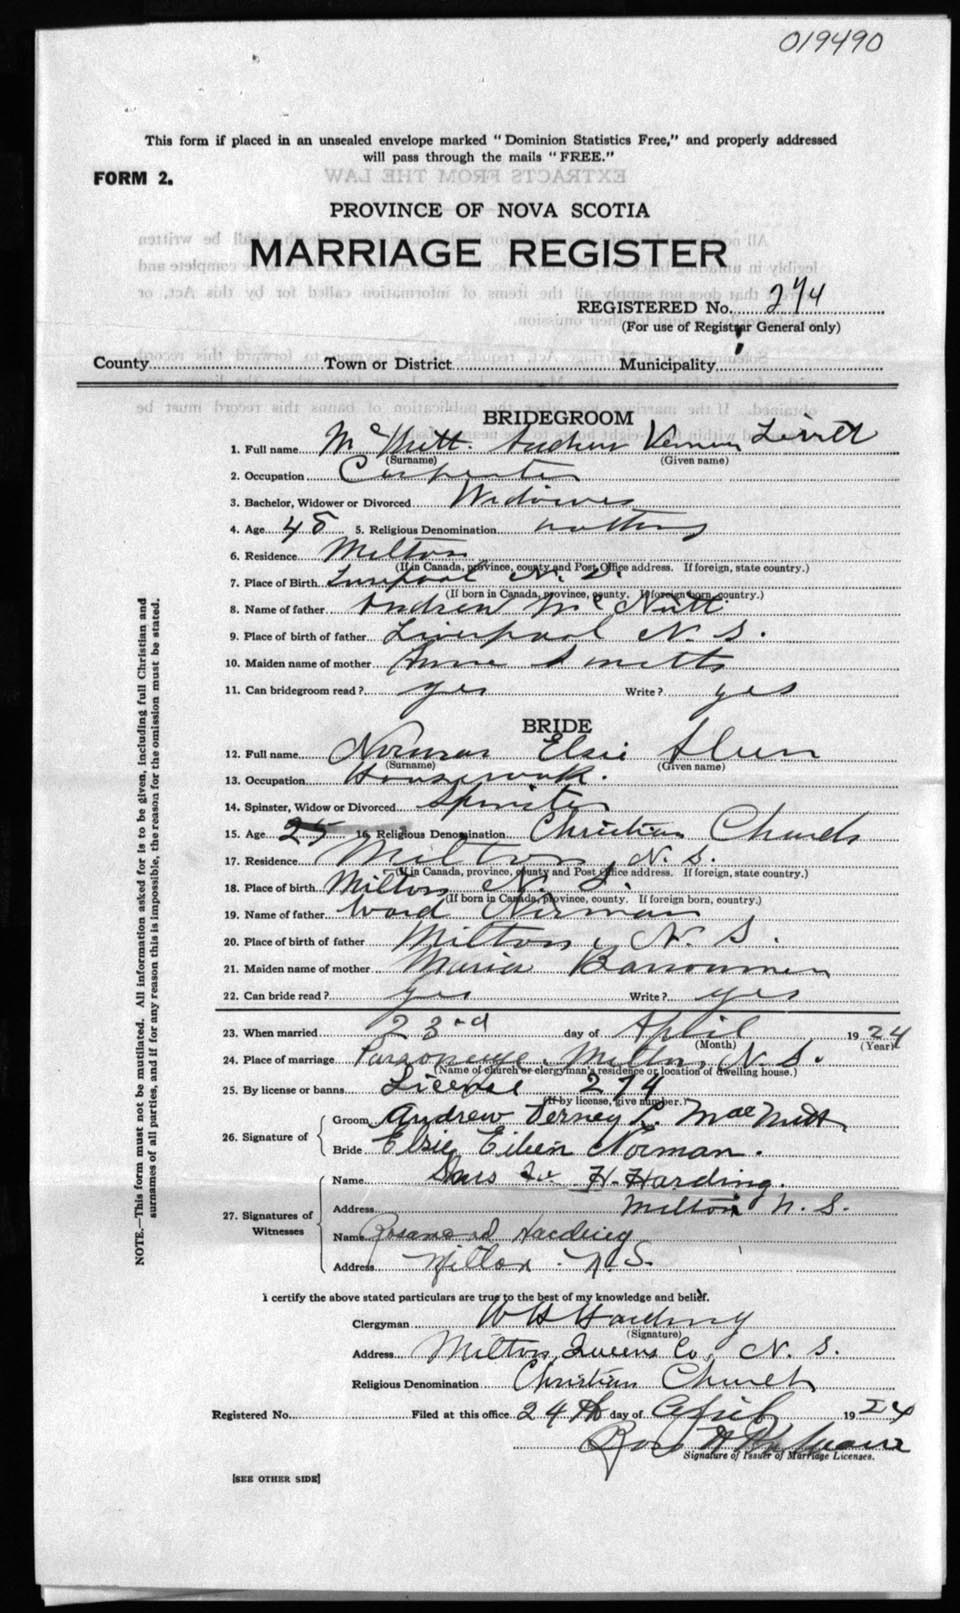 019490
This form if placed in an unsealed envelope marked "Dominion Statistics Free," and properly addressed
will pass through the mails "FREE."
FORM 2.
EXTRACTS FROM THE LAW
PROVINCE OF NOVA SCOTIA
MARRIAGE REGISTER
REGISTERED No. 274
(For use of Registrar General only)
County Town or District Municipality
BRIDEGROOM
1. Full name McNutt Andrew
(Surname) (Given name)
2. Occupation Carpenter
3. Bachelor, Widower or Divorced Widower
4. Age 45 5. Religious Denomination nothing
6. Residence Milton
(If in Canada, province, county and Post Office address. If foreign, state country.)
7. Place of Birth Liverpool N. S.
(If born in Canada, province, county. If foreign born, country.)
8. Name of father Andrew McNutt
9. Place of birth of father Liverpool N. S.
10. Maiden name of mother Anne
11. Can bridegroom read? yes Write? yes
BRIDE
12. Full name Norman Elsie
(Surname) (Given name)
13. Occupation Housework.
14. Spinster, Widow or Divorced Spinster
15. Age 25 16. Religious Denomination Christian Church
17. Residence Milton, N. S.
(If in Canada, province, county and Post Office address. If foreign, state country.)
18. Place of birth Milton N. S.
(If born in Canada, province, county. If foreign born, country.)
19. Name of father Ward Norman
20. Place of birth of father Milton, N. S.
21. Maiden name of mother Maria
22. Can bride read? yes Write? yes
23. When married 23rd day of April 1924
(Month) (Year)
24. Place of marriage Parsonage, Milton, N. S.
(Name of church or clergyman's residence or location of dwelling house.)
25. By license or banns License 274
(If by license, give number.)
26. Signature of
Groom Andrew Verney L. MacNutt
Bride Elsie Eileen Norman.
27. Signatures of Witnesses
Name H. Harding.
Address Milton N. S.
Name Harding
Address Milton. N. S.
I certify the above stated particulars are true to the best of my knowledge and belief.
Clergyman W H Harding
(Signature)
Address Milton, Queens Co, N. S.
Religious Denomination Christian Church
Registered No. Filed at this office 24th day of April 1924
Signature of Issuer of Marriage Licenses.
[SEE OTHER SIDE]
NOTE.—This form must not be mutilated. All information asked for is to be given, including full Christian and
surnames of all parties, and if for any reason this is impossible, the reason for the omission must be stated.